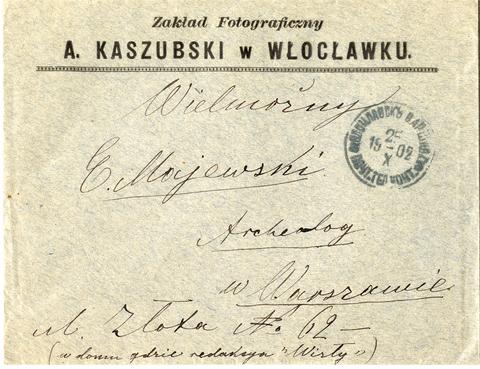 Zakład Fotograficzny
A. KASZUBSKI w WŁOCŁAWKU.
Wielmożny
E. Majewski
Archeolog
w Warszawie
ul. Złota № 62 —
(w domu gdzie redakcya "Wisły")
25
19 – 02
X